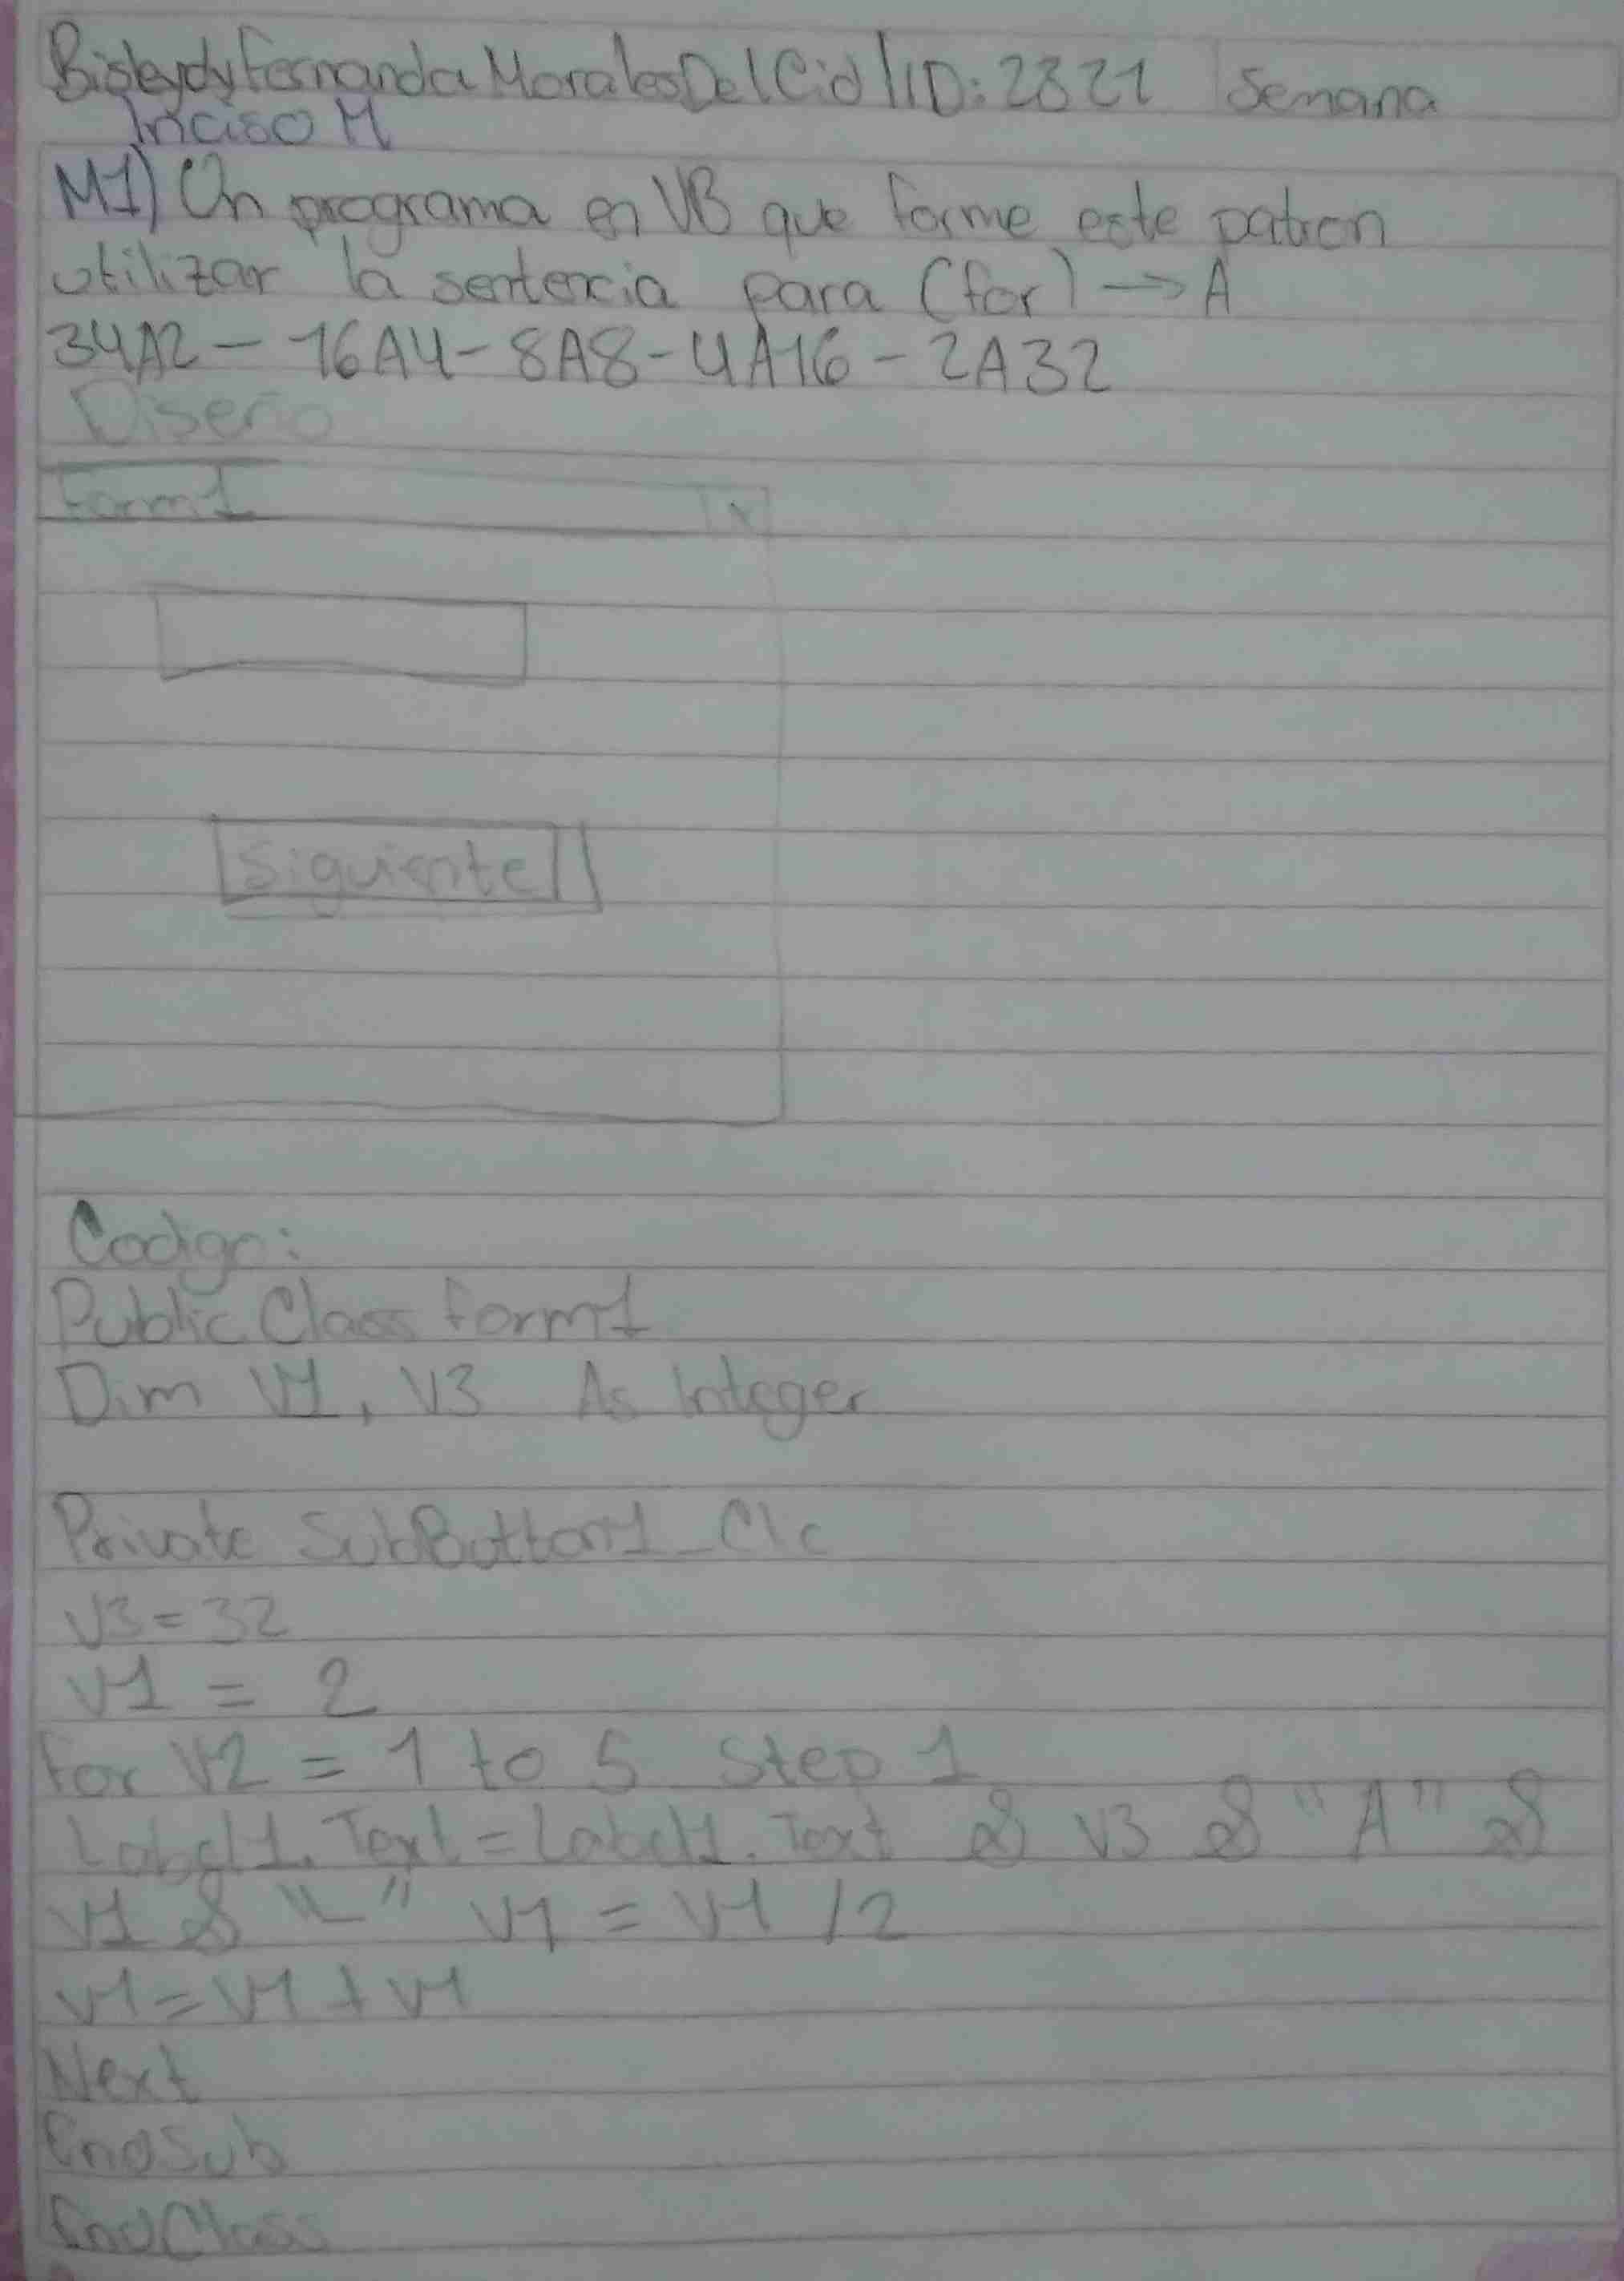 Bisleydy Fernanda Morales Del Cid | ID: 2821 Semana
Inciso M
M1) Un programa en VB que forme este patron
utilizar la sentencia para (for) → A
34A2 - 16A4 - 8A8 - 4A16 - 2A32
Diseño
Form1 x
Siguiente
Codigo:
Public Class form1
Dim V1, V3 As Integer
Private SubButton1_Clc
V3 = 32
V1 = 2
for V2 = 1 to 5 Step 1
Label1. Text = Label1. Text & V3 & "A" &
V1 & "-" V1 = V1 / 2
V1 = V1 + V1
Next
EndSub
EndClass